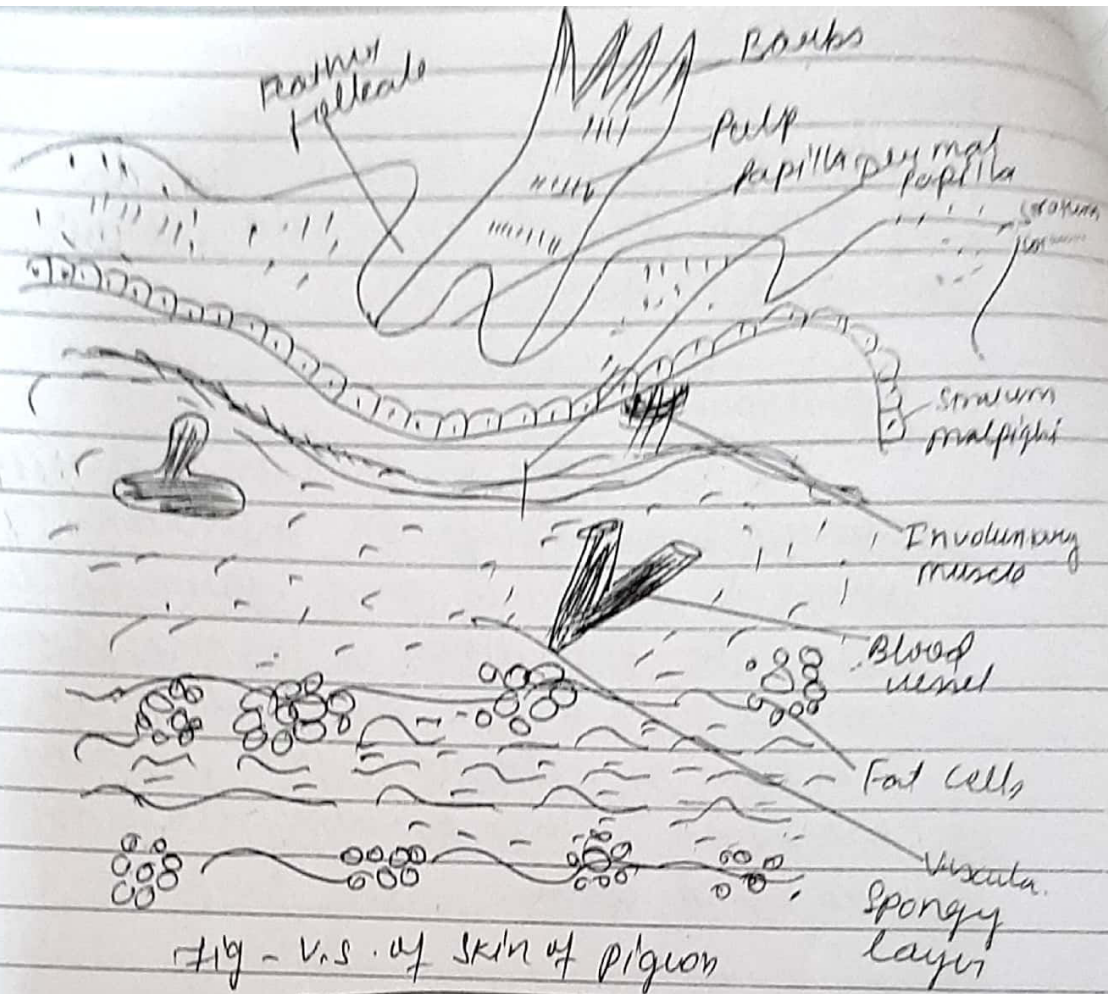 Barbs
Feather
Pulp
Papilla
Dermal
papilla
Stratum
Stratum
malpighi
Involuntary
muscle
Blood
vessel
Fat cells
Vascula.
Spongy
layer
Fig - V.S. of skin of pigeon